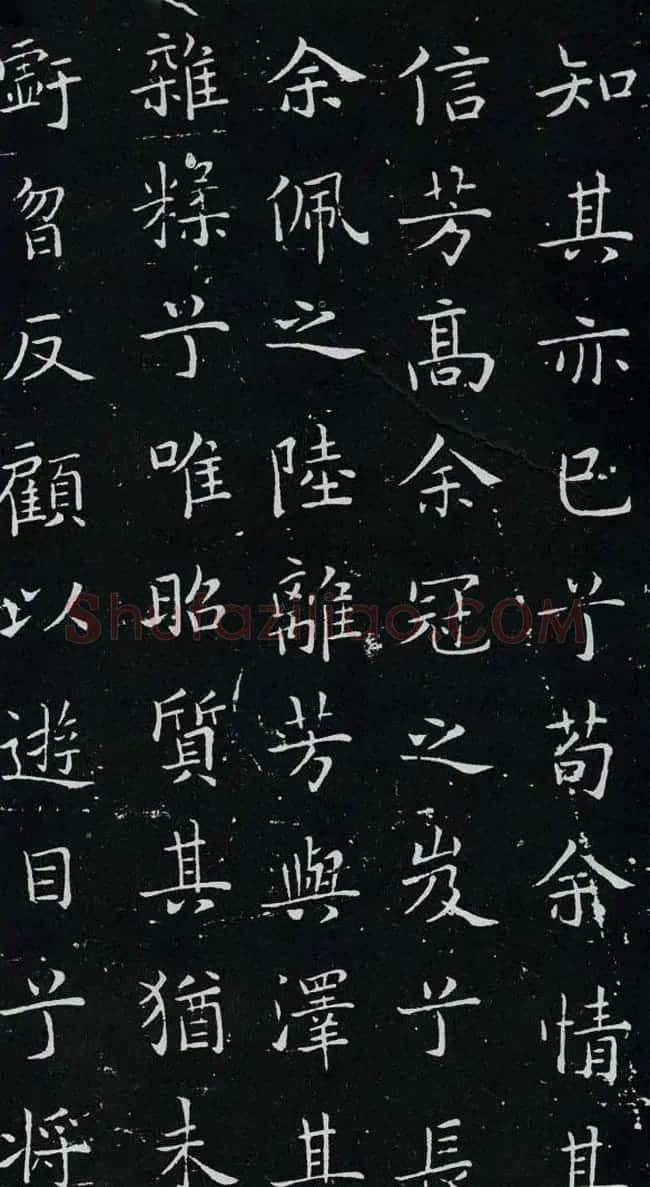 知其亦已兮苟余情其
信芳髙余冠之岌兮長
余佩之陸離芳與澤其
雜糅兮唯昭質其猶未
虧曶反顧以遊目兮将
Shufaziliao.COM